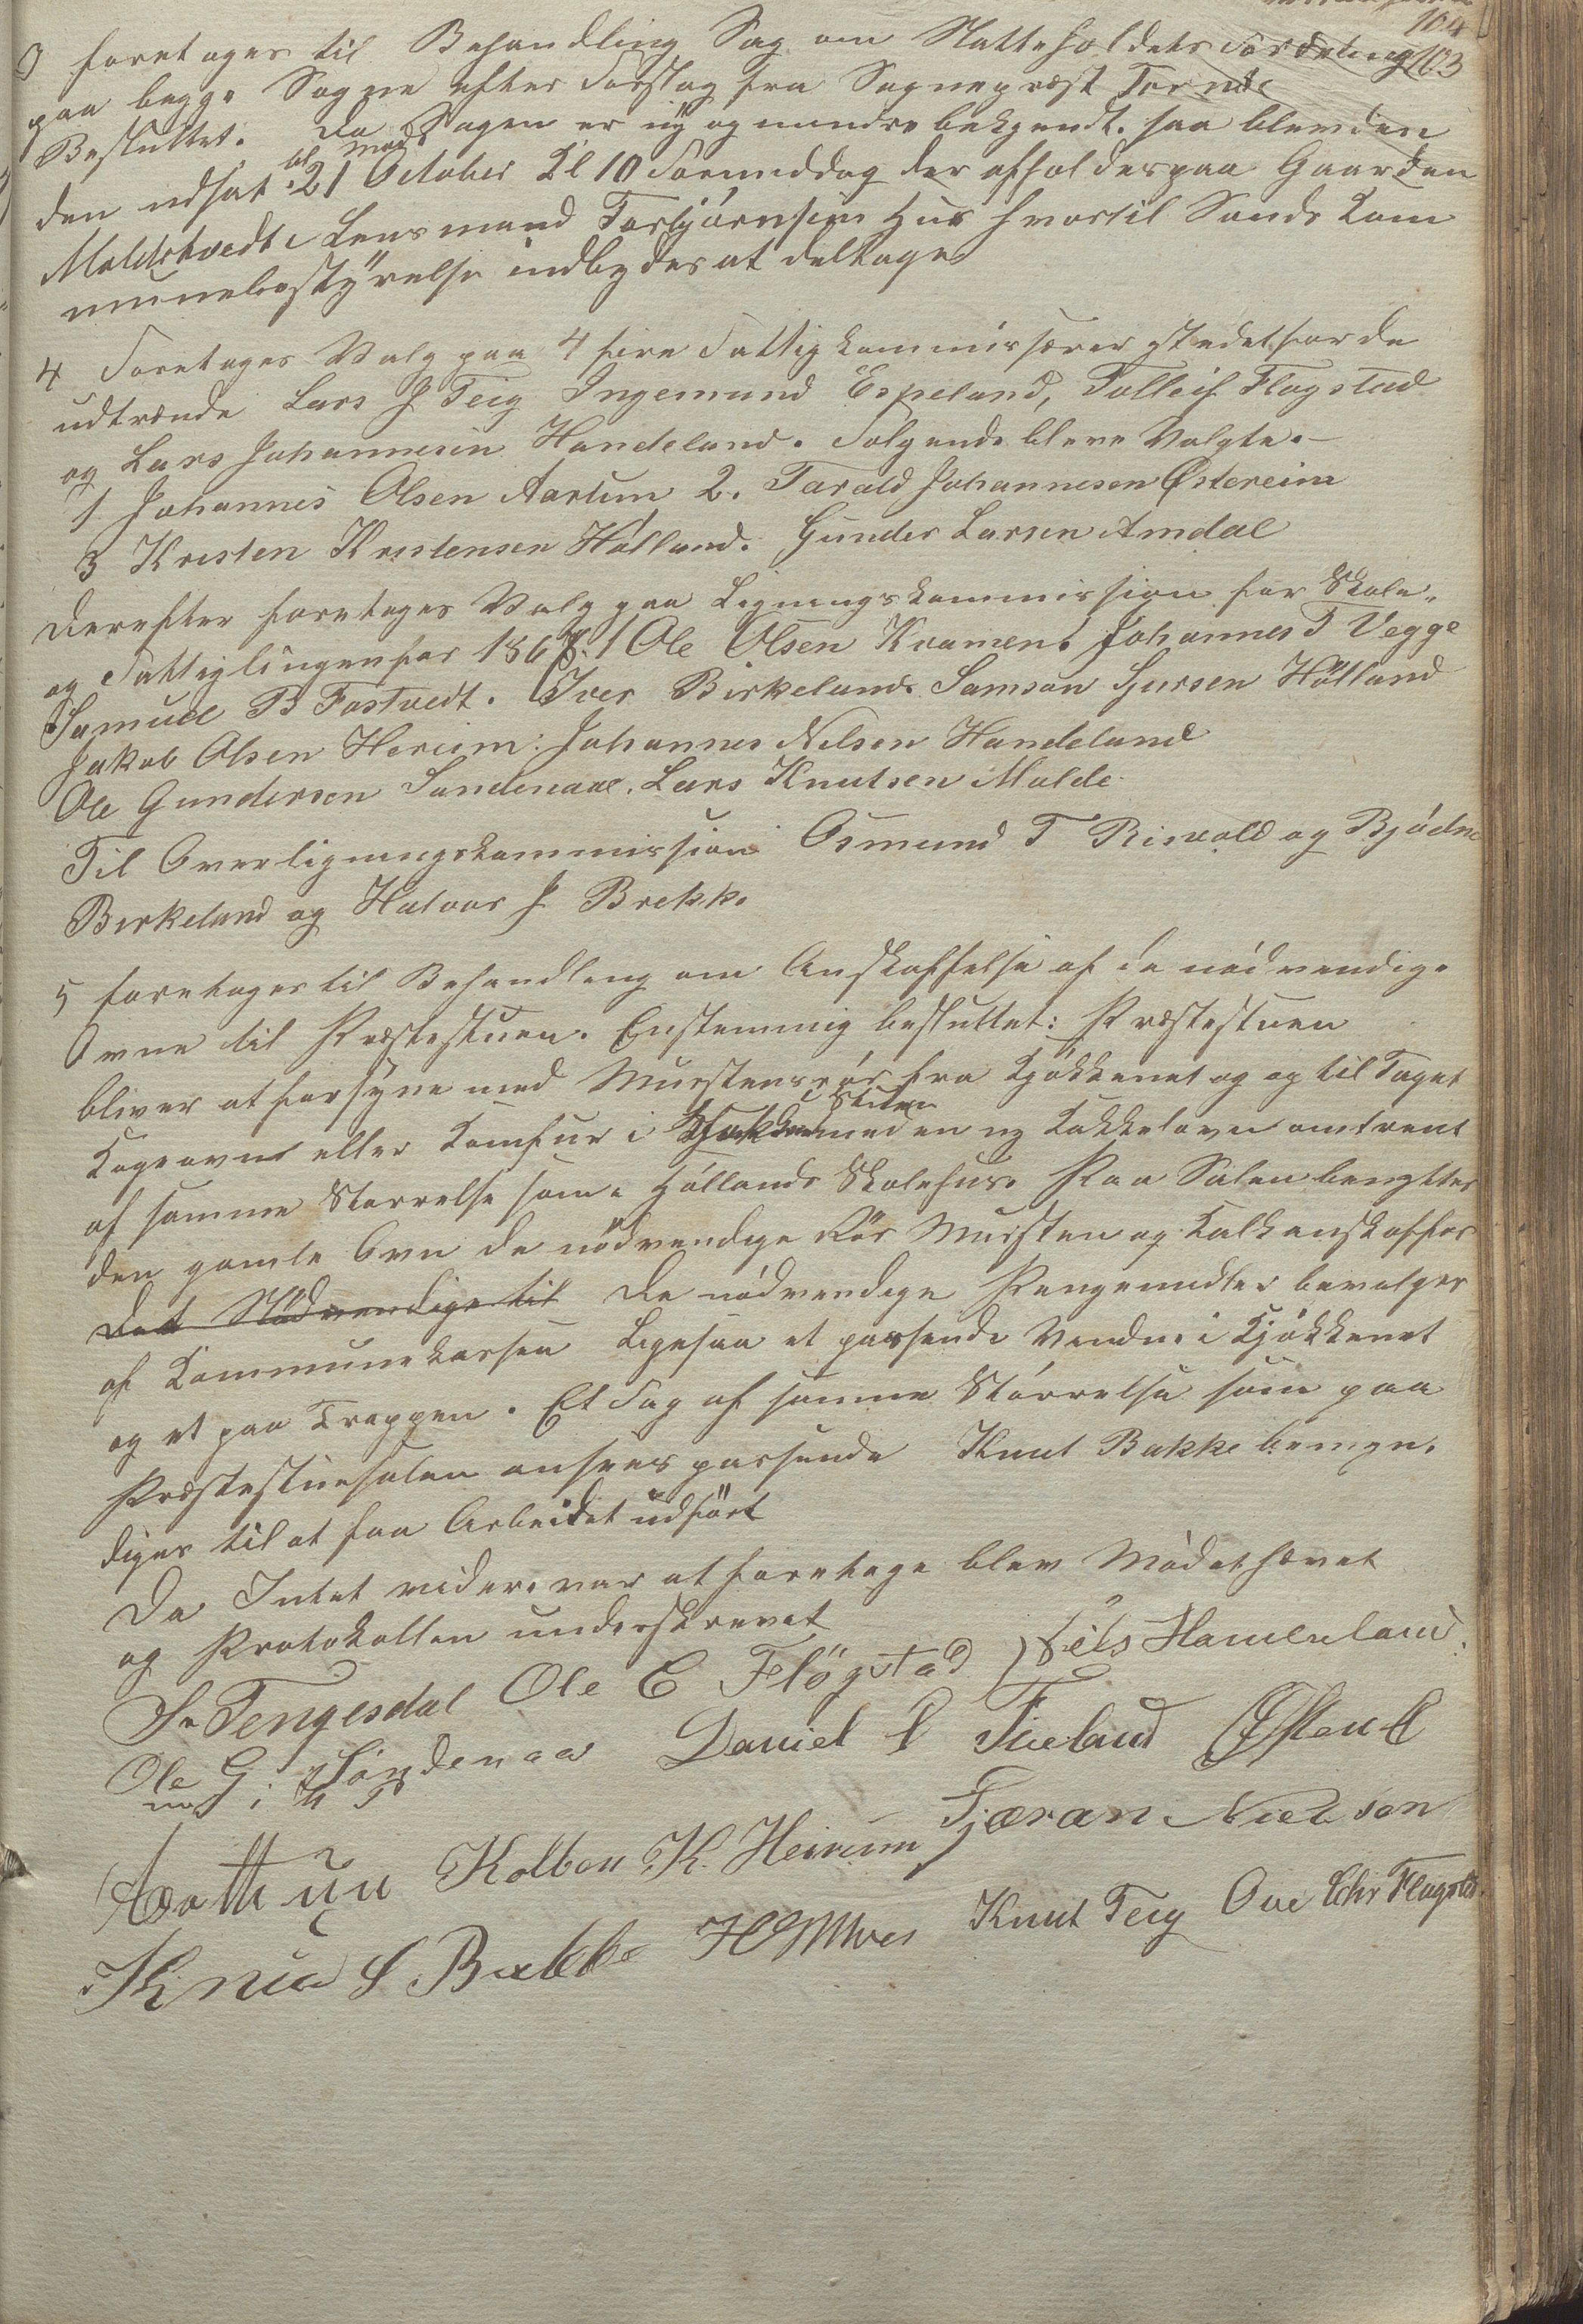 104
103
3 foretages til Behandling Sag om Skatteholdets Fordeling
paa begge Sogne efter Forslag fra Sognepræst Tornde
Besluttet. Da Sagen er ny og mindre bekjendt. saa blev den
den udsat til Møde 21 October Kl 10 Formiddag der afholdes paa Gaarden
Moldetvedt i Lensmand Torbjørnsens Hus hvortil Sands Kom
munebestyrelse indbydes at deltage
4 Foretages Valg paa 4 fire Fattigkommissærer istedetfor de
udtrænde Lars J Teig Ingemund Espeland, Tolleif Flogstad
og Lars Johannesen Handeland. Følgende bleve Valgte.
1 Johannes Olsen Aartun 2. Tarald Johannesen Østereim
3 Kristen Kristensen Hålland. Gunder Larsen Amdal
Derefter foretages Valg paa Ligningskommission for Skole-
og Fattiglingen for 1867. 1 Ole Olsen Kvamen. Johannes T Vegge
Samuel B Fostvedt. Iver Birkeland. Samson Sjursen Hålland
Jakob Olsen Hereim. Johannes Nilsen Handeland
Ole Gundersen Sandenaae. Lars Knutsen Molde
Til Overligningskommission Osmund T Risvold og Bjødne
Birkeland og Halvor J Brekke
5 foretages til Behandling om Anskaffelse af de nødvendige
Ovne til Præstestuen. Enstemmig besluttet: Præstestuen
bliver at forsyne med Murstensrør fra Kjøkkenet og og til Taget
Kogeovn eller Komfur i Kjøkkenet i Stuen med en ny Kakkelovn omtrent
af samme Størrelse som i Høllands Skolehus. Paa Salen benyttes
den gamle Ovn de nødvendige Rør Mursten og Kalk anskaffes
Det Nødvendige til De nødvendige Pengemidler bevilges
af Kommunekassen Ligesaa et passende Vindue i Kjøkkenet
og et paa Trappen. Et Fag af samme Størrelse som paa
Præstestuesalen ansees passende Knut Bakke bemyn-
diges til at faa Arbeidet udført
Da Intet videre var at foretage blev Mødet hævet
og Protokollen underskrevet
S. Tengesdal Ole C Fløgstad Nils Handeland.
Ole G: Søndenaa Daniel S Tieland Østen
m. i. P
Kolben K. Heirum Gjæran Nielsen
Knud S Bakke Knut Teig Ove Chr Flugstad.